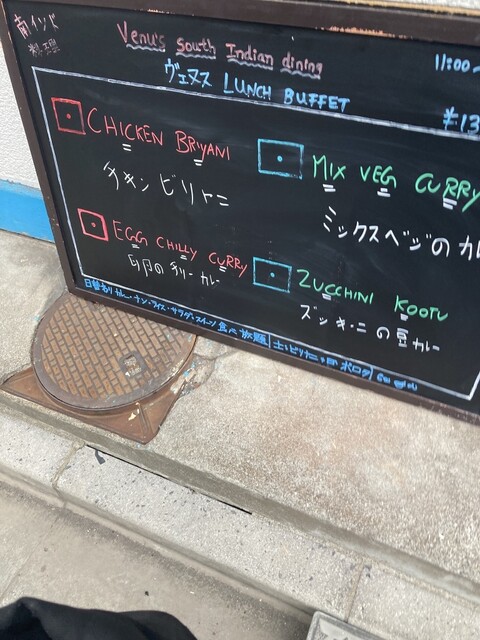 南インド
料理
Venu's South Indian dining
11:00~
ヴェヌス LUNCH BUFFET
¥13
CHICKEN BRIYANI
チキンビリヤニ
MIX VEG CURRY
ミックスベジのカレ
EGG CHILLY CURRY
卵のチリーカレー
ZUCCHINI KOOTU
ズッキーニの豆カレー
日替わりカレー・ナン・ライス・サラダ・スイーツ食べ放題